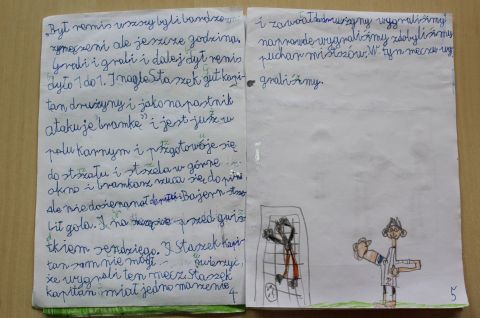 „Był remis wszyscy byli bardzo
zmęczeni ale jeszcze godzina.
Grali i grali i dalej był remis
było 1 do 1. I nagle Staszek był kapi-
tan drużyny i jako napastnik
atakuje bramkę” i jest już w
polu karnym i pszgotowóje się
do stszału i stszela w górne
okno i bramkarz rzuca się do
ale nie dosięga
Lił gola. I na przed gwiz-
tkiem sendziego. I Staszek kapi-
tan sam nie mógł uwieżyć,
że wygrali ten mecz. Staszek
kapitan miał jedno mażenie
4
i zawołał drużyny wygraliśmy!
naprawdę wygraliśmy zdobyliśmy
puchar mistszów. W tym meczu wy-
graliśmy.
5